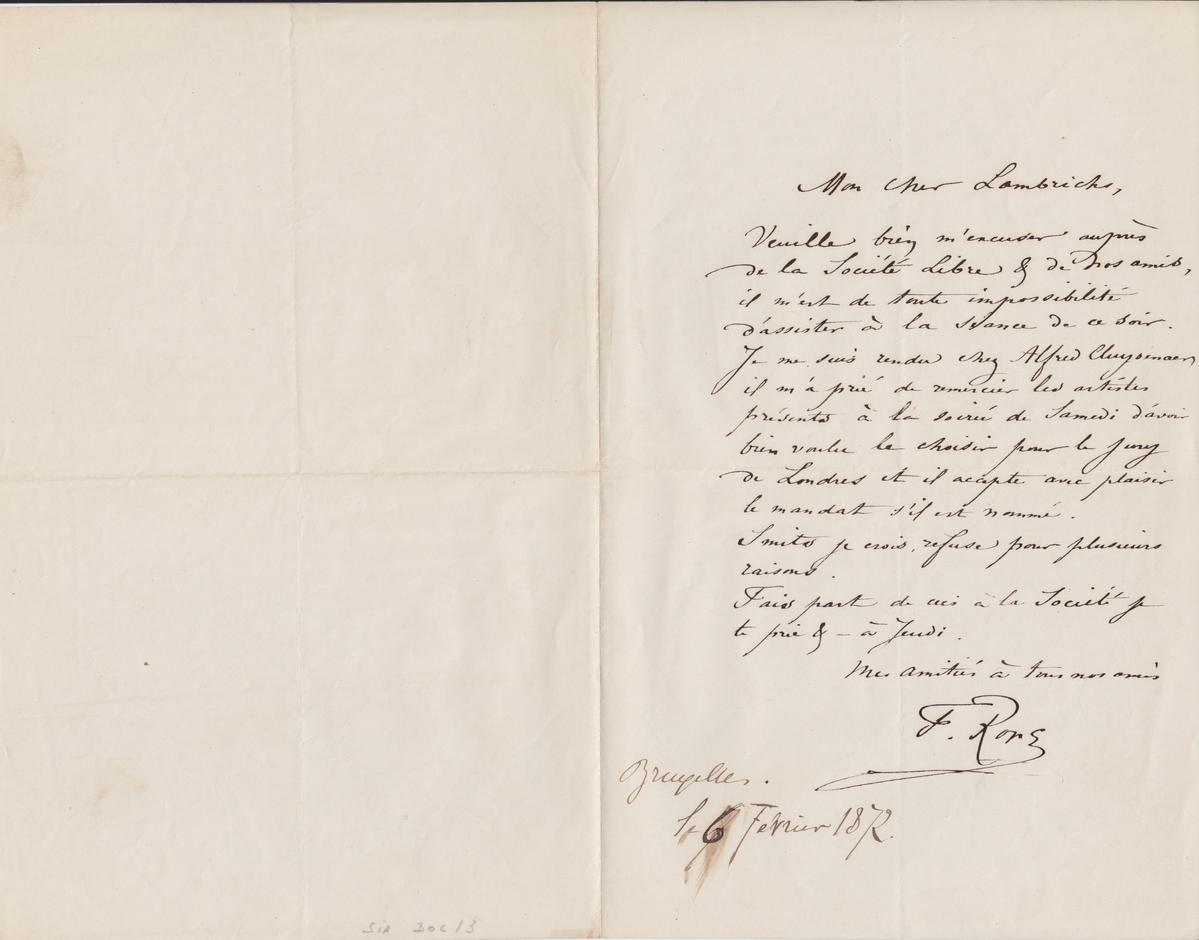 Mon cher Lambrichs,
Veuille bien m'excuser auprès
de la Société Libre & de nos amis,
il m'est de toute impossibilité
d'assister à la séance de ce soir.
Je me suis rendu chez Alfred Cluysenaer,
il m'a prié de remercier les artistes
présents à la soirée de Samedi d'avoir
bien voulu le choisir pour le jury
de Londres et il accepte avec plaisir
le mandat s'il est nommé.
Smits je crois, refuse pour plusieurs
raisons.
Fais part de ceci à la Société je
te prie & – à Jeudi.
Mes amitiés à tous nos amis
F. Rops
Bruxelles.
le 6 Février 1872.
SIA DOC 13